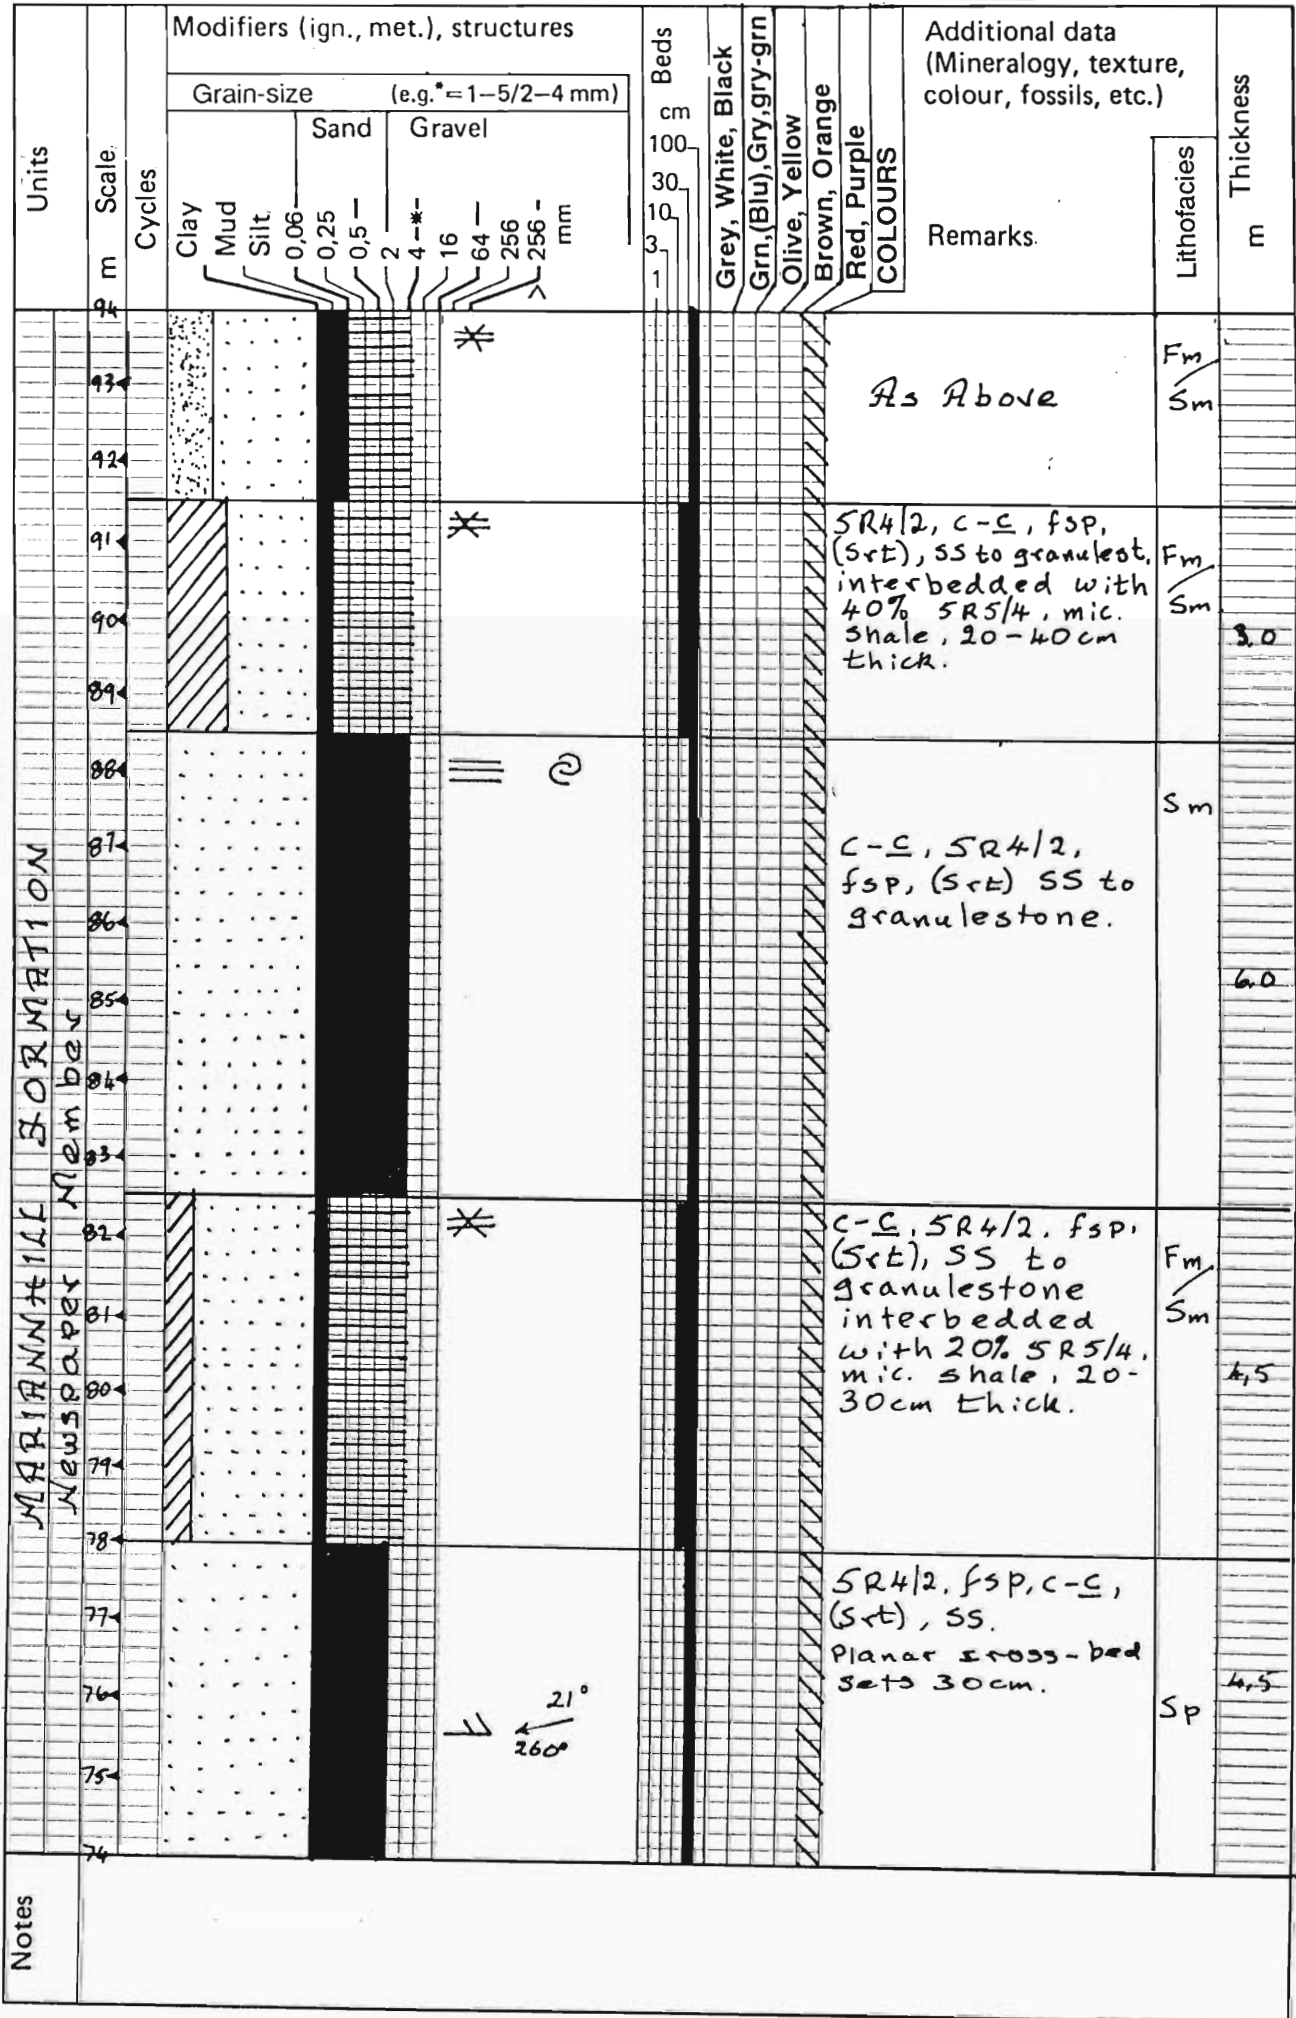 Modifiers (ign., met.), structures
Grain-size (e.g.*=1-5/2-4 mm)
Sand Gravel
Units
m Scale
Cycles
Clay
Mud
Silt
0,06
0,25
0,5
2
4-*-
16
64
256
>256
mm
Beds
cm
100
30
10
3
1
Grey, White, Black
Grn,(Blu),Gry,gry-grn
Olive, Yellow
Brown, Orange
Red, Purple
COLOURS
Additional data
(Mineralogy, texture,
colour, fossils, etc.)
Remarks.
Lithofacies
Thickness
m
MARIANNHILL FORMATION
Newspaper Member
94
93
92
91
90
89
88
87
86
85
84
83
82
81
80
79
78
77
76
75
74
As Above
Fm
Sm
5R4/2, c-c, fsp,
(Srt), SS to granulest.
interbedded with
40% 5R5/4, mic.
shale, 20-40cm
thick.
Fm
Sm
3,0
c-c, 5R4/2,
fsp, (Srt) SS to
granulestone.
Sm
6,0
c-c, 5R4/2, fsp,
(Srt), SS to
granulestone
interbedded
with 20% 5R5/4,
mic. shale, 20-
30cm thick.
Fm
Sm
4,5
5R4/2, fsp, c-c,
(Srt), SS.
Planar cross-bed
sets 30cm.
Sp
4,5
21°
260°
Notes